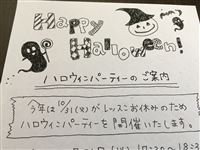 Happy
Halloween!
ハロウィンパーティーのご案内
今年は10/31(火)がレッスンお休みのため
ハロウィンパーティーを開催いたします。